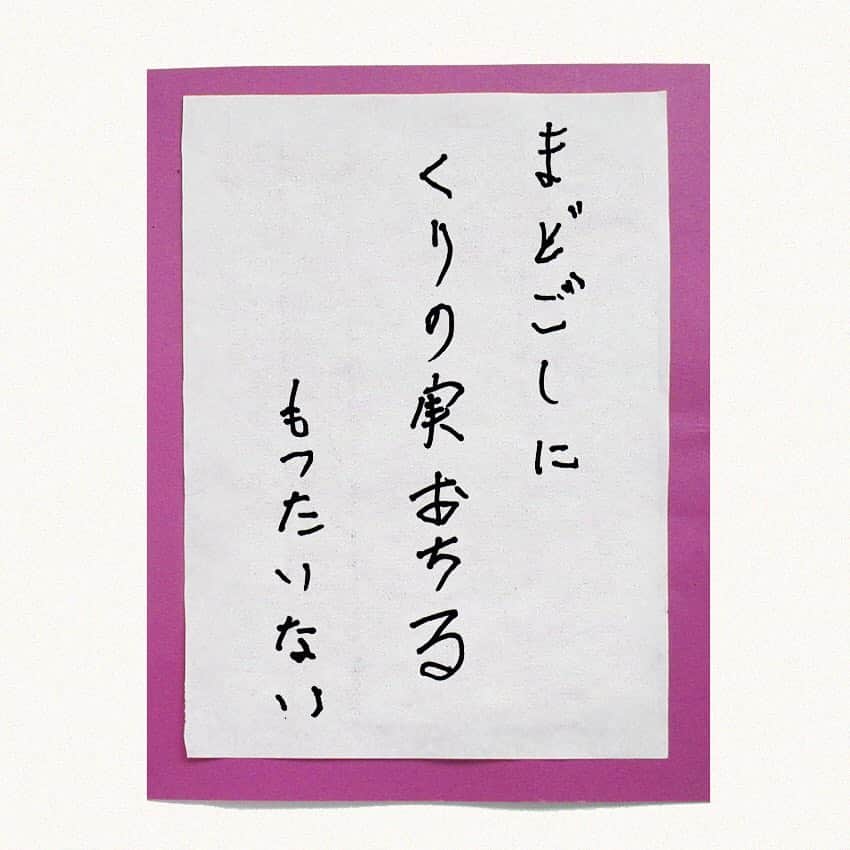 まどごしに
くりの実おちる
もったいない